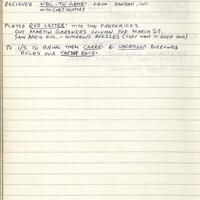 RECIEVED NBL-TV GAME FROM BANDAI, INC
WITH CHET MURPHY
PLAYED RED LETTER WITH THE FREDERICKS.
GOT MARTIN GARDNER'S COLUMN FOR MARCH '63,
SAW APRIL COL. - NUMEROUS PUZZLES (THEY WANT TO KEEP THIS)
TO I/S TO BRING THEM CAREERS & VACATION BORROWED
RULES FOR YACHT RACE.